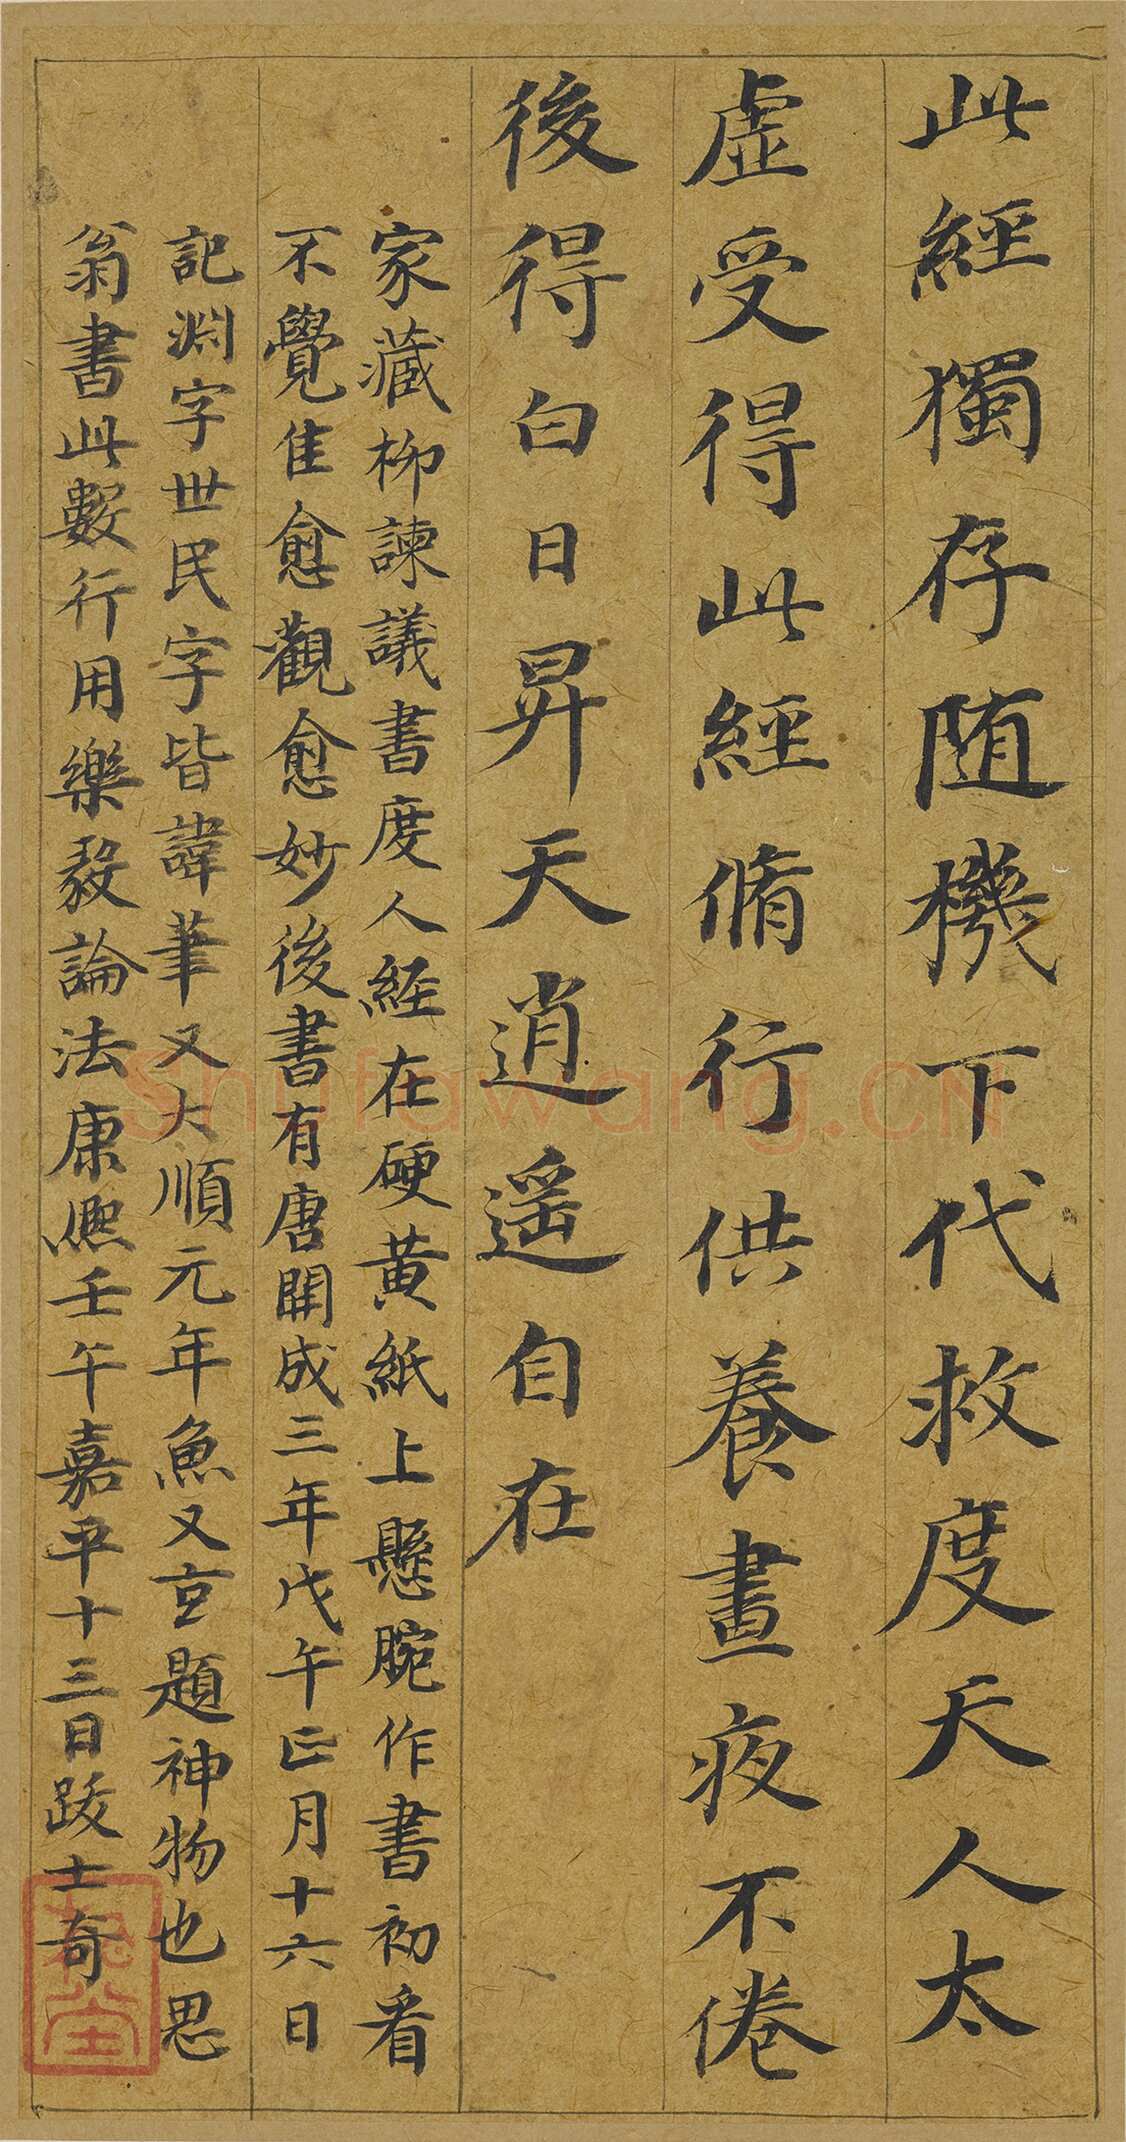 此經獨存随機下代救度天人太
虛受得此經脩行供養晝夜不倦
後得白日昇天逍遥自在
家藏柳諫議書度人經在硬黃紙上懸腕作書初看
不覺佳愈觀愈妙後書有唐開成三年戊午正月十六日
記淵字世民字皆諱筆又大順元年魚又玄題神物也思
翁書此數行用樂毅論法康熙壬午嘉平十三日跋士奇
Shufawang.CN